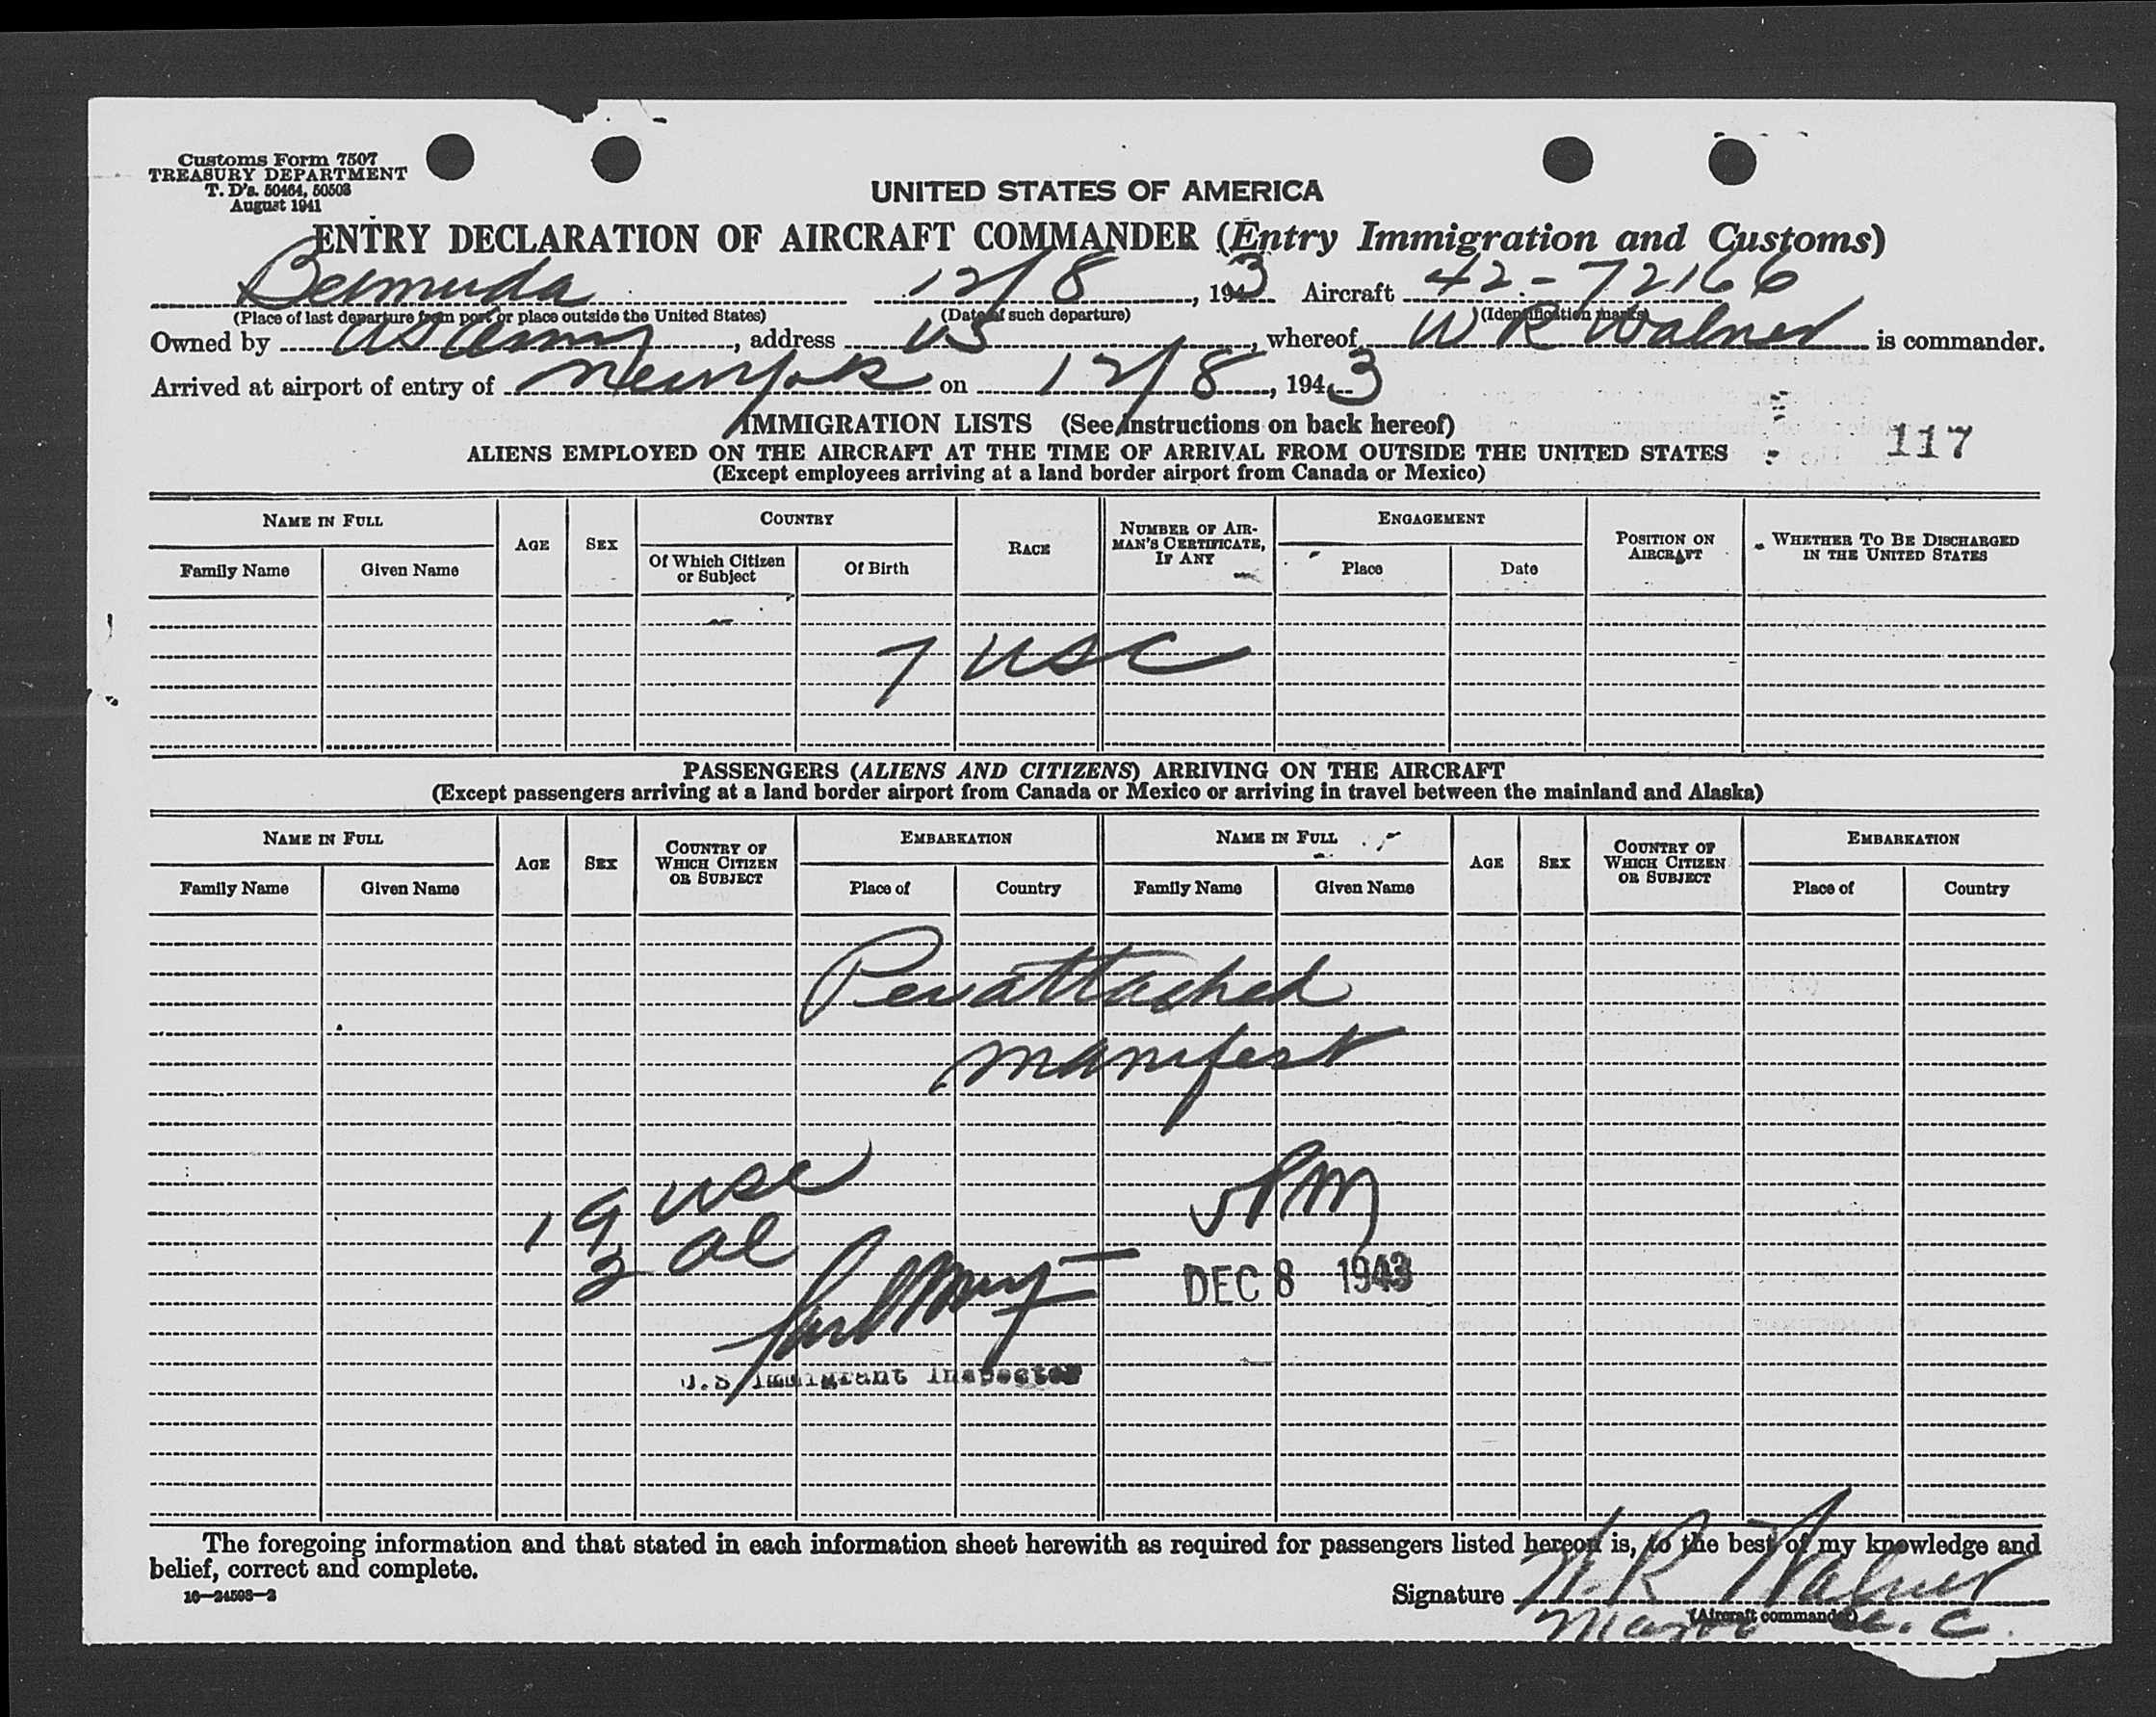 Customs Form 7507
TREASURY DEPARTMENT
T. D's. 50464, 50503
August 1941
UNITED STATES OF AMERICA
ENTRY DECLARATION OF AIRCRAFT COMMANDER (Entry Immigration and Customs)
Bermuda 12/8, 1943 Aircraft 42-72166
(Place of last departure from port or place outside the United States) (Date of such departure) (Identification marks)
Owned by US Army, address US, whereof W R Walner is commander.
Arrived at airport of entry of New York on 12/8, 1943
IMMIGRATION LISTS (See instructions on back hereof)
ALIENS EMPLOYED ON THE AIRCRAFT AT THE TIME OF ARRIVAL FROM OUTSIDE THE UNITED STATES 117
(Except employees arriving at a land border airport from Canada or Mexico)
NAME IN FULL AGE SEX COUNTRY RACE NUMBER OF AIRMAN'S CERTIFICATE, IF ANY ENGAGEMENT POSITION ON AIRCRAFT WHETHER TO BE DISCHARGED IN THE UNITED STATES
Family Name Given Name Of Which Citizen or Subject Of Birth Place Date
7 USC
PASSENGERS (ALIENS AND CITIZENS) ARRIVING ON THE AIRCRAFT
(Except passengers arriving at a land border airport from Canada or Mexico or arriving in travel between the mainland and Alaska)
NAME IN FULL AGE SEX COUNTRY OF WHICH CITIZEN OR SUBJECT EMBARKATION NAME IN FULL AGE SEX COUNTRY OF WHICH CITIZEN OR SUBJECT EMBARKATION
Family Name Given Name Place of Country Family Name Given Name Place of Country
Per attached
manifest
19 USC
3 al
DEC 8 1943
U.S Immigrant Inspector
The foregoing information and that stated in each information sheet herewith as required for passengers listed hereon is, to the best of my knowledge and
belief, correct and complete.
16—24508-2
Signature W. R. Walner
(Aircraft commander)